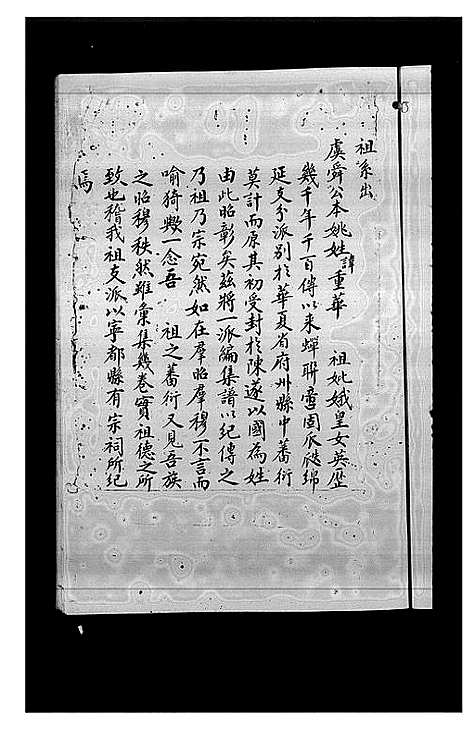 祖系出
虞舜公本姚姓諱重華　祖妣娥皇女英歷
幾千年千百傳以來蟬聯壹固瓜瓞綿
延支分派別於華夏省府州縣中蕃衍
莫計而原其初受封於陳遂以國為姓
由此昭彰矣茲將一派編集譜以紀傳之
乃祖乃宗宛然如在羣昭羣穆不言而
喻猗歟一念吾　祖之蕃衍又見吾族
之昭穆秩然雖彙集幾卷實祖德之所
致也稽我祖支派以寧都縣有宗祠所紀
焉